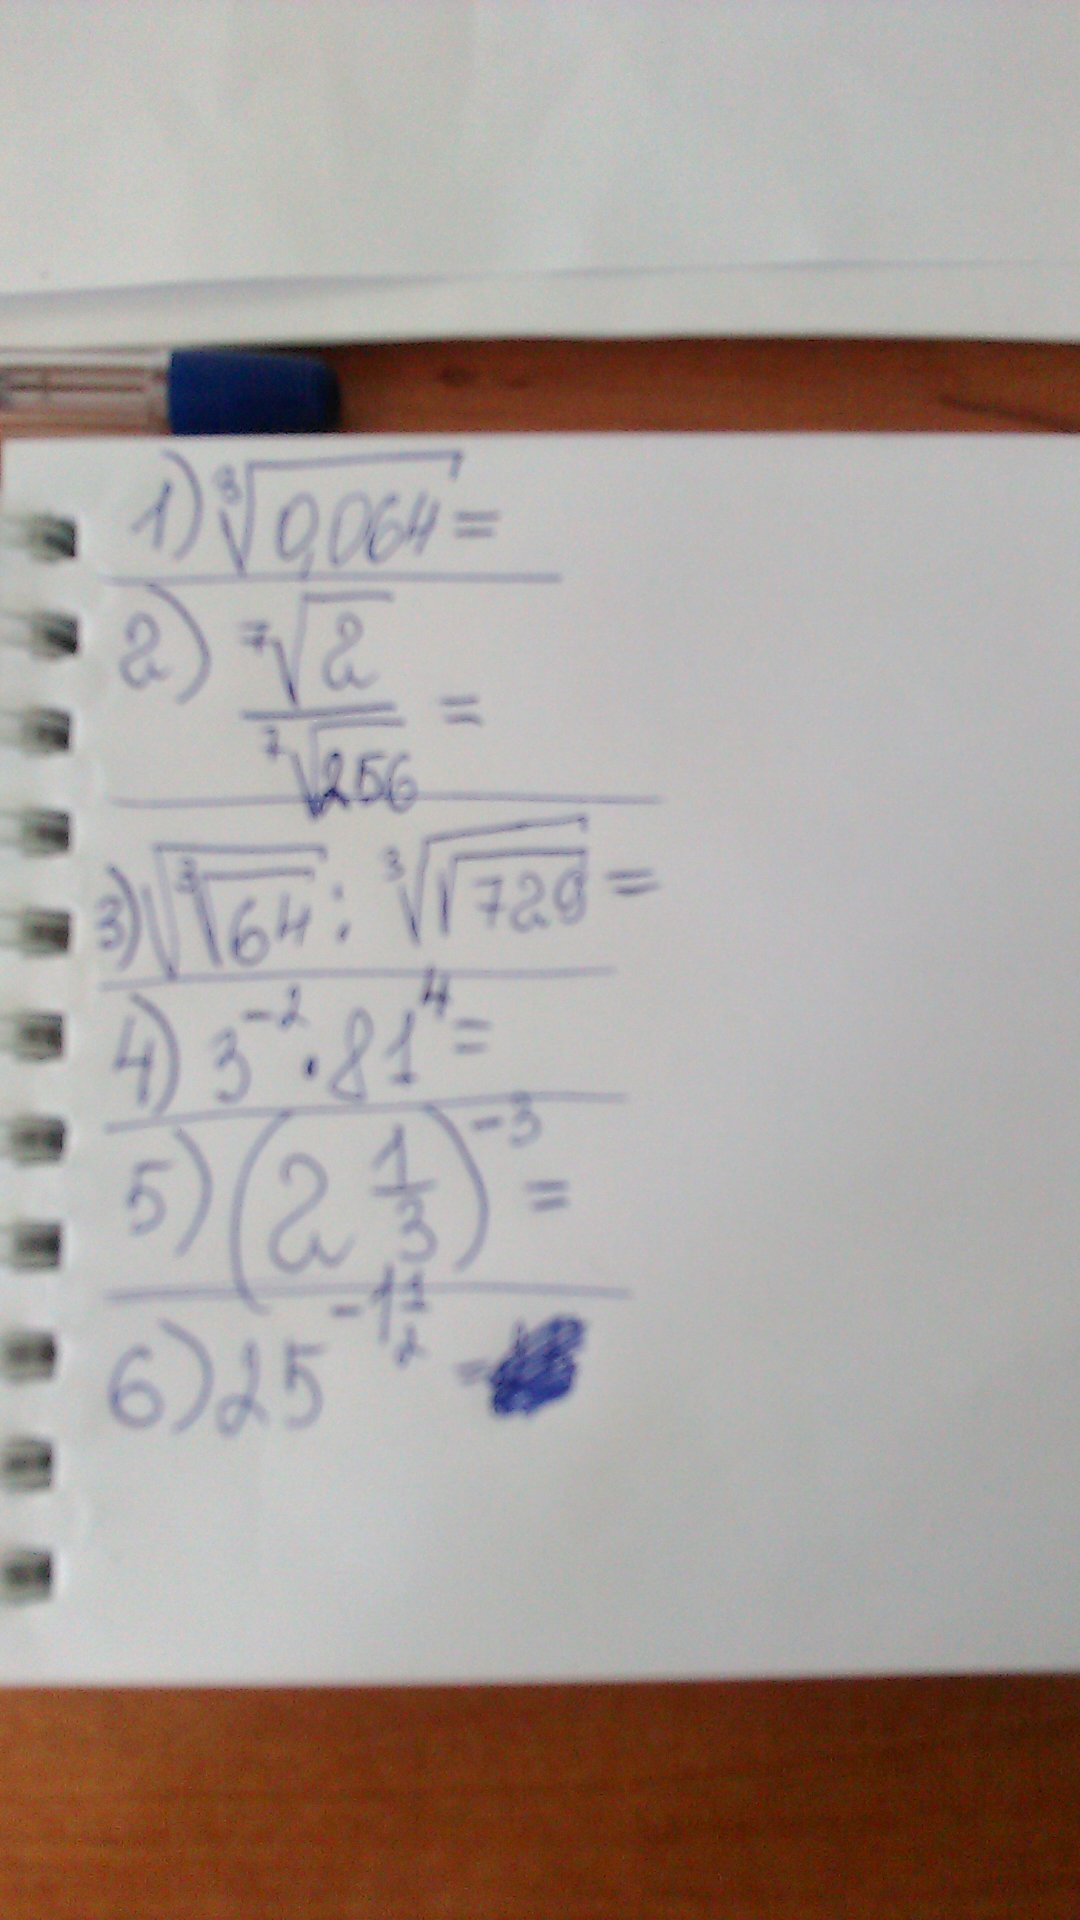 1) ∛0,064 =
2) ⁷√2 / ⁷√256 =
3) √∛64 : ∛√729 =
4) 3⁻² · 81⁴ =
5) (2 1/3)⁻³ =
6) 25^(-1 1/2) =